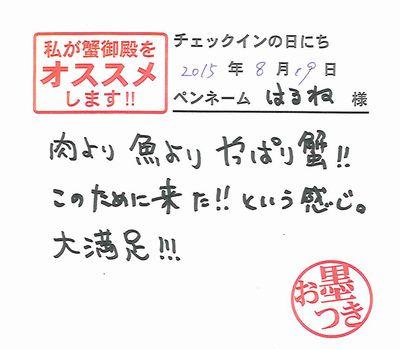 私が蟹御殿を
オススメ
します!!
チェックインの日にち
2015 年 8 月 19 日
ペンネーム はるね 様
肉より 魚より やっぱり蟹!!
このために来た!! という感じ。
大満足!!!
お墨つき